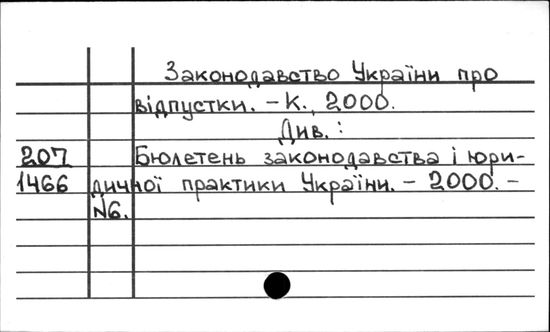 Законодавство України про
відпустки. – К., 2000.
Див.:
207 Бюлетень законодавства і юри-
1466 дичної практики України. – 2000. –
N6.